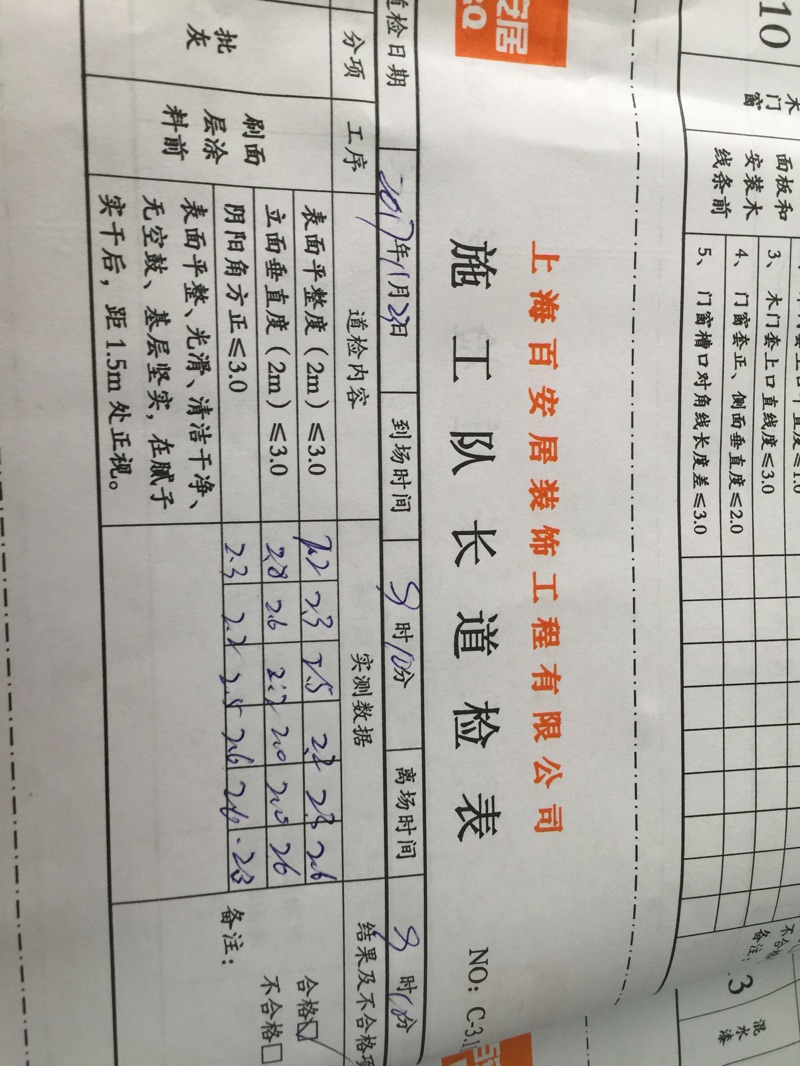 10
木门窗
面板和
安装木
线条前
3、 木门套上口直线度≤3.0
4、 门窗套正、侧面垂直度≤2.0
5、 门窗槽口对角线长度差≤3.0
不合格
备注:
3
混水漆
安居
&Q
上海百安居装饰工程有限公司
施工队长道检表
NO: C-3.1
道检日期 2017年11月23日 到场时间 9时10分 离场时间 9时10分
分项 工序 道检内容 实测数据 结果及不合格项
批灰
刷面
层涂
料前
表面平整度(2m)≤3.0 2.2 2.3 2.5 2.2 2.3 2.6
立面垂直度(2m)≤3.0 2.8 2.6 2.2 2.0 2.0 2.6
阴阳角方正≤3.0 2.3 2.2 2.5 2.6 2.6 2.3
表面平整、光滑、清洁干净、
无空鼓、基层坚实,在腻子
实干后,距 1.5m 处正视。
合格☑
不合格□
备注: